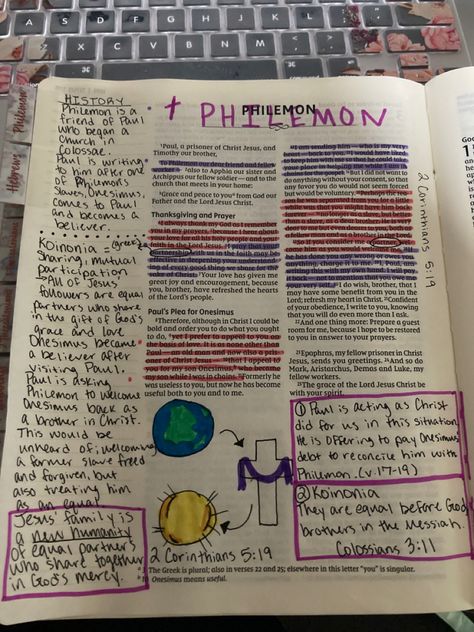 PHILEMON
† PHILEMON
HISTORY
Philemon is a
friend of Paul
who began a
Church in
Colossae.
Paul is writing
to him after one
of Philemon's
slaves, Onesimus,
comes to Paul
and becomes a
believer.
Koinonia = greek
sharing, mutual
participation
= All of Jesus'
followers are equal
partners who share
in the gift of God's
grace and love
Onesimus became
a believer after
visiting Paul.
Paul is asking
Philemon to welcome
Onesimus back as
a brother in Christ.
This would be
unheard of; welcoming
a former slave freed
and forgiven, but
also treating him
as an equal.
Jesus' family is
a new humanity
of equal partners
who share together
in God's mercy.
1Paul, a prisoner of Christ Jesus, and
Timothy our brother,
To Philemon our dear friend and fellow
worker— 2also to Apphia our sister and
Archippus our fellow soldier—and to the
church that meets in your home:
3Grace and peace to you from God our
Father and the Lord Jesus Christ.
Thanksgiving and Prayer
4I always thank my God as I remember
you in my prayers, 5because I hear about
your love for all his holy people and your
faith in the Lord Jesus. 6I pray that your
partnership with us in the faith may be
effective in deepening your understand-
ing of every good thing we share for the
sake of Christ. 7Your love has given me
great joy and encouragement, because
you, brother, have refreshed the hearts
of the Lord's people.
Paul's Plea for Onesimus
8Therefore, although in Christ I could be
bold and order you to do what you ought
to do, 9yet I prefer to appeal to you on
the basis of love. It is as none other than
Paul—an old man and now also a pris-
oner of Christ Jesus— 10that I appeal to
you for my son Onesimus, who became
my son while I was in chains. 11Formerly he
was useless to you, but now he has become
useful both to you and to me.
12I am sending him—who is my very
heart—back to you. 13I would have liked
to keep him with me so that he could take
your place in helping me while I am in
chains for the gospel. 14But I did not want to
do anything without your consent, so that
any favor you do would not seem forced
but would be voluntary. 15Perhaps the rea-
son he was separated from you for a little
while was that you might have him back
forever— 16no longer as a slave, but better
than a slave, as a dear brother. He is very
dear to me but even dearer to you, both as
a fellow man and as a brother in the Lord.
17So if you consider me a partner, wel-
come him as you would welcome me. 18If
he has done you any wrong or owes you
anything, charge it to me. 19I, Paul, am
writing this with my own hand. I will pay
it back—not to mention that you owe me
your very self. 20I do wish, brother, that I
may have some benefit from you in the
Lord; refresh my heart in Christ. 21Confident
of your obedience, I write to you, knowing
that you will do even more than I ask.
22And one thing more: Prepare a guest
room for me, because I hope to be restored
to you in answer to your prayers.
23Epaphras, my fellow prisoner in Christ
Jesus, sends you greetings. 24And so do
Mark, Aristarchus, Demas and Luke, my
fellow workers.
25The grace of the Lord Jesus Christ be
with your spirit.
2 Corinthians 5:19
① Paul is acting as Christ
did for us in this situation.
He is offering to pay Onesimus'
debt to reconcile him with
Philemon. (v.17-19)
② Koinonia
They are equal before God
brothers in the Messiah.
Colossians 3:11
2 Corinthians 5:19
3 The Greek is plural; also in verses 22 and 25; elsewhere in this letter "you" is singular.
10 Onesimus means useful.
Philemon
Hebrews